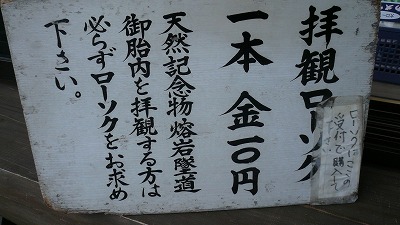 拝観ローソク
一本 金一〇円
天然記念物熔岩墜道
御胎内を拝観する方は
必らずローソクをお求め
下さい。
受付で購入